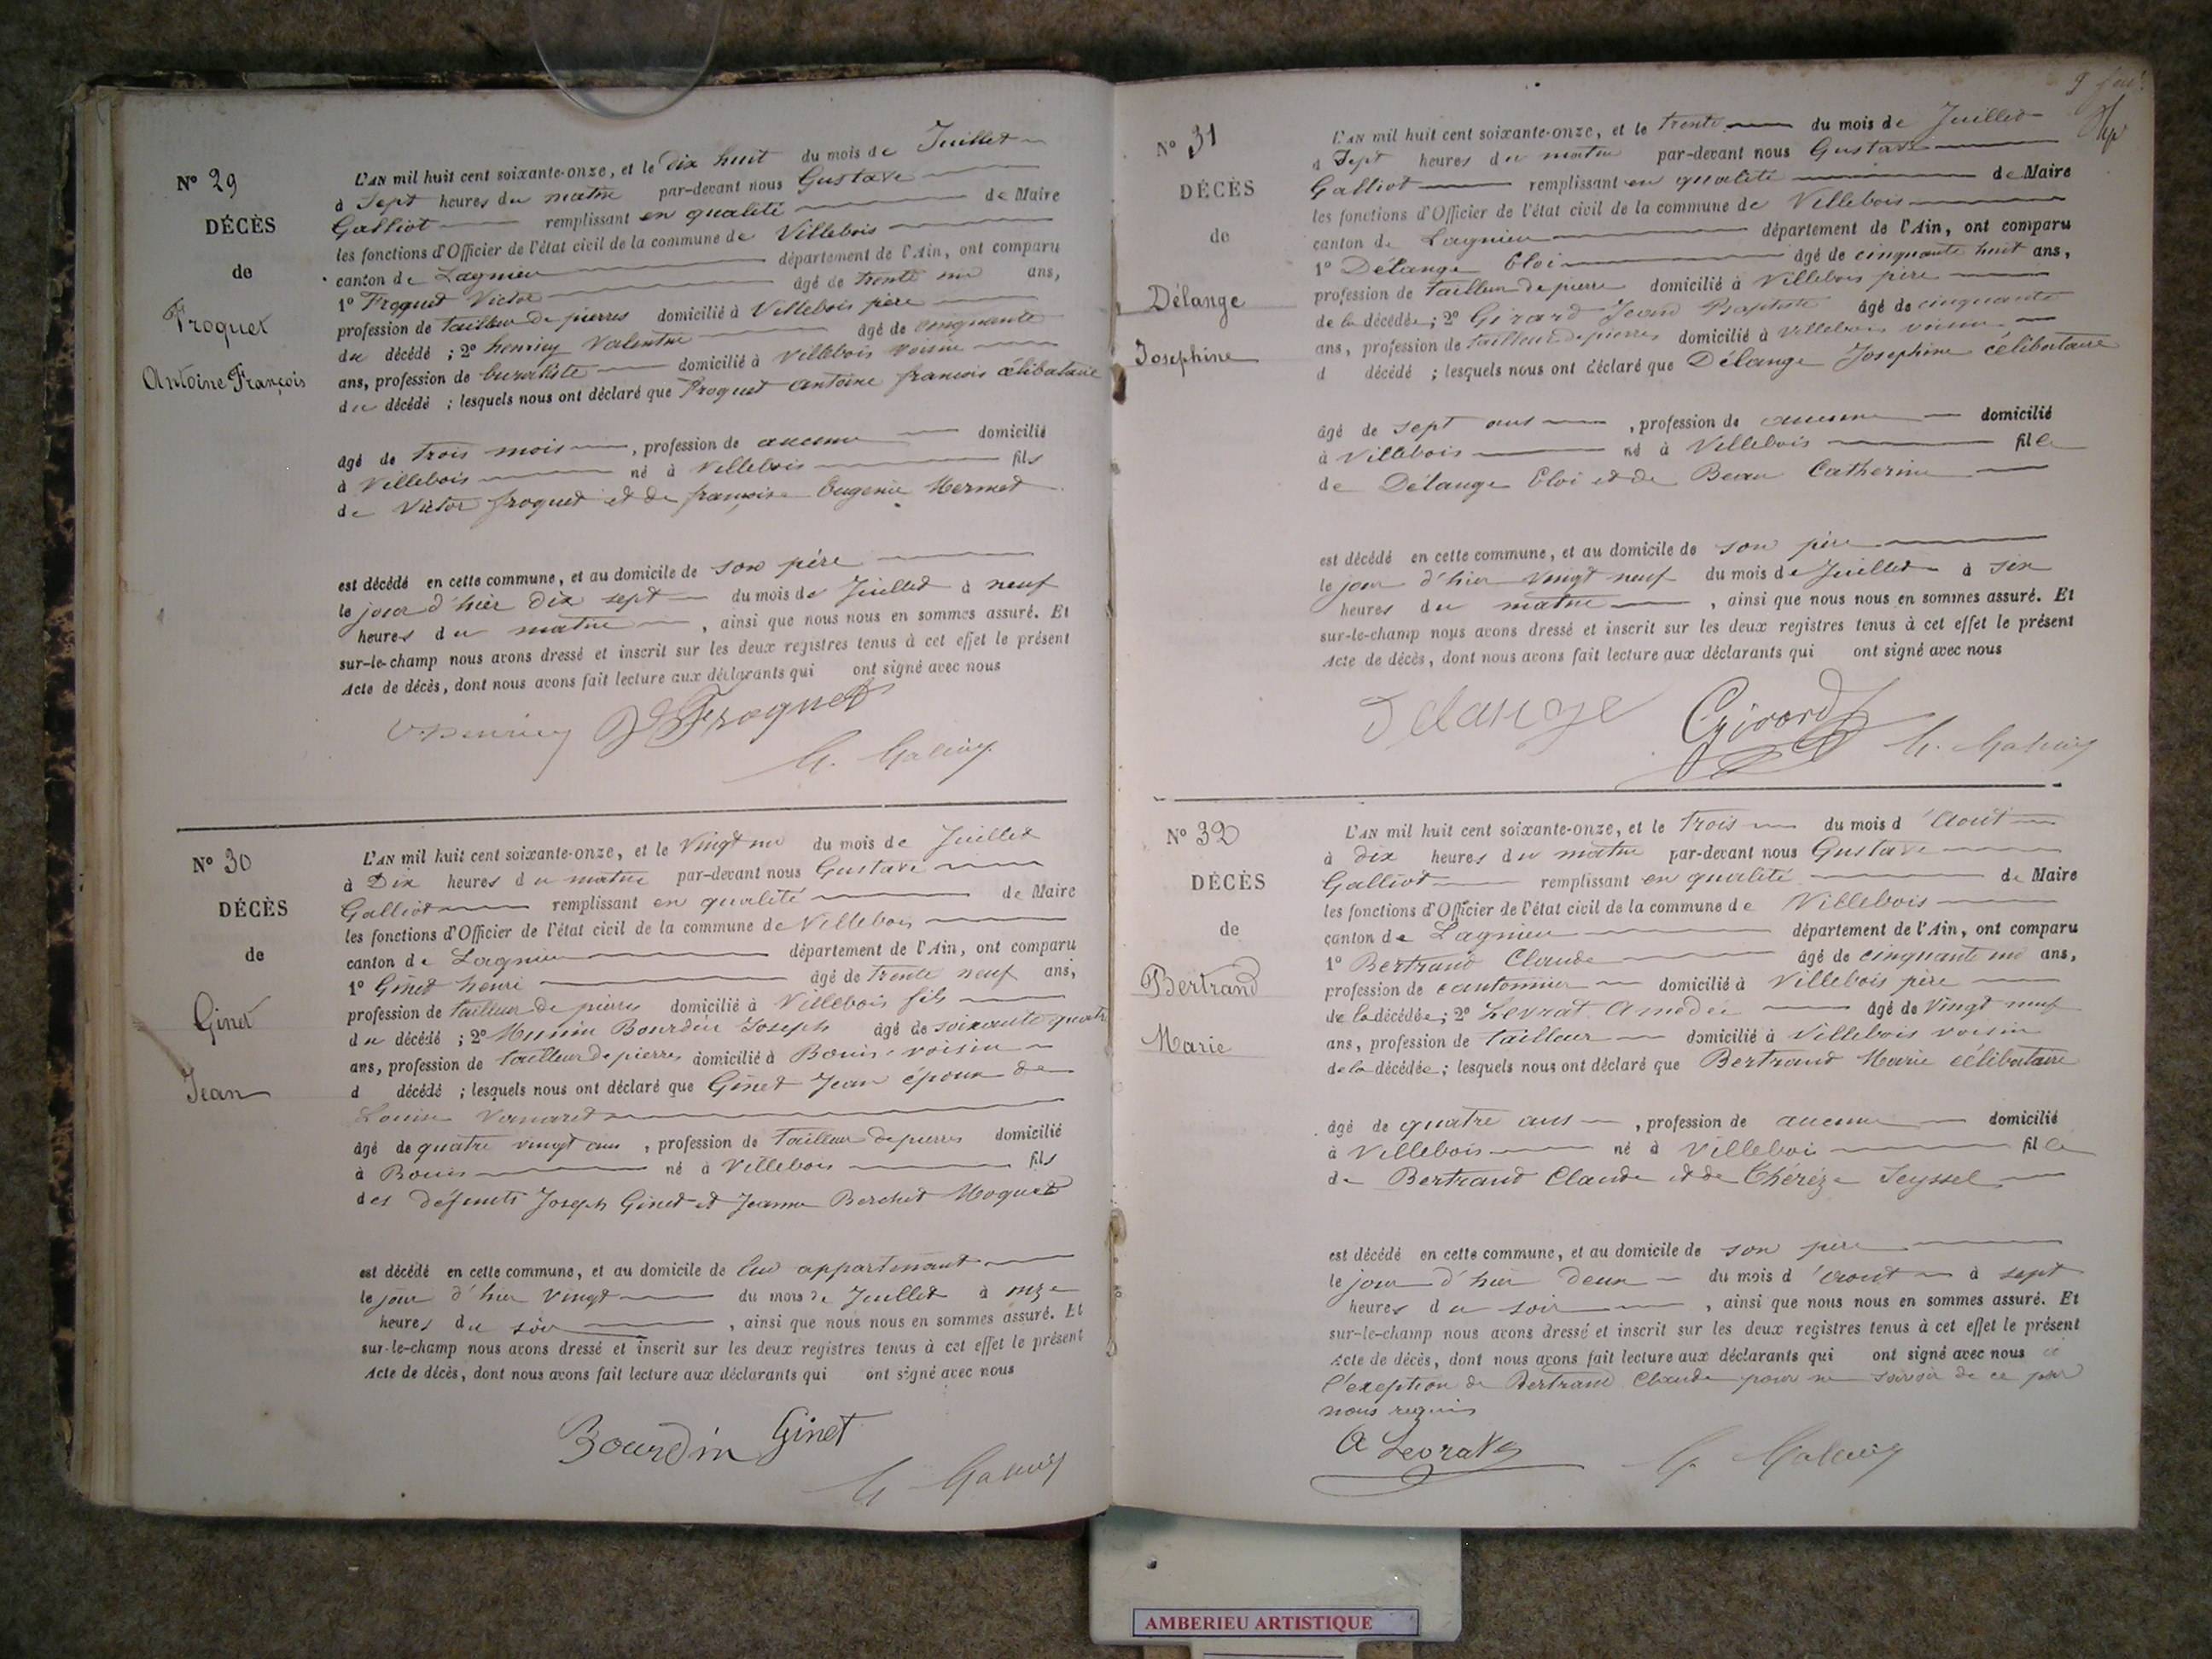 N° 29
DÉCÈS
de
Froquet
Antoine François
L'AN mil huit cent soixante-onze, et le dix huit du mois de Juillet
à Sept heures du matin par-devant nous Gustave
Galliot remplissant en qualité de Maire
les fonctions d'Officier de l'état civil de la commune de Villebois
canton de Lagnieu département de l'Ain, ont comparu
1° Froquet Victor âgé de trente un ans,
profession de tailleur de pierres domicilié à Villebois père
du décédé ; 2° henriey Valentin âgé de cinquante
ans, profession de buraliste domicilié à Villebois voisin
du décédé ; lesquels nous ont déclaré que Froquet antoine françois célibataire
âgé de trois mois , profession de aucune domicilié
à Villebois né à Villebois fils
de Victor froquet et de françoise Eugenie Mermet
est décédé en cette commune, et au domicile de son père
le jour d'hier dix sept du mois de Juillet à neuf
heures du matin , ainsi que nous nous en sommes assuré. Et
sur-le-champ nous avons dressé et inscrit sur les deux registres tenus à cet effet le présent
Acte de décès, dont nous avons fait lecture aux déclarants qui ont signé avec nous
V henriey Froquet
N° 30
DÉCÈS
de
Ginet
Jean
L'AN mil huit cent soixante-onze, et le Vingt un du mois de Juillet
à Dix heures du matin par-devant nous Gustave
Galliot remplissant en qualité de Maire
les fonctions d'Officier de l'état civil de la commune de Villebois
canton de Lagnieu département de l'Ain, ont comparu
1° Ginet henri âgé de trente neuf ans,
profession de tailleur de pierres domicilié à Villebois fils
du décédé ; 2° Munier Bourdin Joseph âgé de soixante quatre
ans, profession de tailleur de pierres domicilié à Bouis voisin
d décédé ; lesquels nous ont déclaré que Ginet Jean époux de
Louise Vanaret
âgé de quatre vingt ans , profession de tailleur de pierres domicilié
à Bouis né à Villebois fils
des défunts Joseph Ginet et Jeanne Berchet Moguet
est décédé en cette commune, et au domicile de lui appartenant
le jour d'hier vingt du mois de Juillet à onze
heures du soir , ainsi que nous nous en sommes assuré. Et
sur-le-champ nous avons dressé et inscrit sur les deux registres tenus à cet effet le présent
Acte de décès, dont nous avons fait lecture aux déclarants qui ont signé avec nous
Bourdin Ginet
N° 31
DÉCÈS
de
Délange
Josephine
L'AN mil huit cent soixante-onze, et le trente du mois de Juillet
à Sept heures du matin par-devant nous Gustave
Galliot remplissant en qualité de Maire
les fonctions d'Officier de l'état civil de la commune de Villebois
canton de Lagnieu département de l'Ain, ont comparu
1° Délange Eloi âgé de cinquante huit ans,
profession de tailleur de pierre domicilié à Villebois père
de la décédée ; 2° Girard Jean Baptiste âgé de cinquante
ans, profession de tailleur de pierres domicilié à Villebois voisin
d décédé ; lesquels nous ont déclaré que Délange Josephine célibataire
âgé de sept ans , profession de aucune domicilié
à Villebois né à Villebois fille
de Délange Eloi et de Beau Catherine
est décédé en cette commune, et au domicile de son père
le jour d'hier vingt neuf du mois de Juillet à six
heures du matin , ainsi que nous nous en sommes assuré. Et
sur-le-champ nous avons dressé et inscrit sur les deux registres tenus à cet effet le présent
Acte de décès, dont nous avons fait lecture aux déclarants qui ont signé avec nous
Delange Girard
N° 32
DÉCÈS
de
Bertrand
Marie
L'AN mil huit cent soixante-onze, et le trois du mois d'Août
à dix heures du matin par-devant nous Gustave
Galliot remplissant en qualité de Maire
les fonctions d'Officier de l'état civil de la commune de Villebois
canton de Lagnieu département de l'Ain, ont comparu
1° Bertrand Claude âgé de cinquante un ans,
profession de cantonnier domicilié à Villebois père
de la décédée ; 2° Levrat Amedée âgé de Vingt neuf
ans, profession de tailleur domicilié à Villebois voisin
de la décédée ; lesquels nous ont déclaré que Bertrand Marie célibataire
âgé de quatre ans , profession de aucune domicilié
à Villebois né à Villeboi fille
de Bertrand Claude et de Thérèze Seyssel
est décédé en cette commune, et au domicile de son père
le jour d'hier deux du mois d'aout à sept
heures du soir , ainsi que nous nous en sommes assuré. Et
sur-le-champ nous avons dressé et inscrit sur les deux registres tenus à cet effet le présent
Acte de décès, dont nous avons fait lecture aux déclarants qui ont signé avec nous à
l'exeption de Bertrand Claude pour ne savoir de ce par
nous requis
A Levrat
AMBERIEU ARTISTIQUE